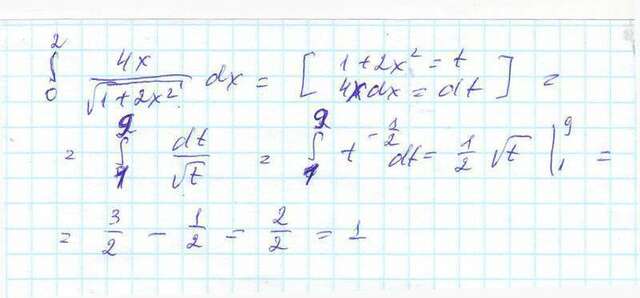 ∫₀² 4x/√(1+2x²) dx = [ 1+2x² = t
4xdx = dt ] =
= ∫₁⁹ dt/√t = ∫₁⁹ t^(-1/2) dt = 1/2 √t |₁⁹ =
= 3/2 − 1/2 = 2/2 = 1